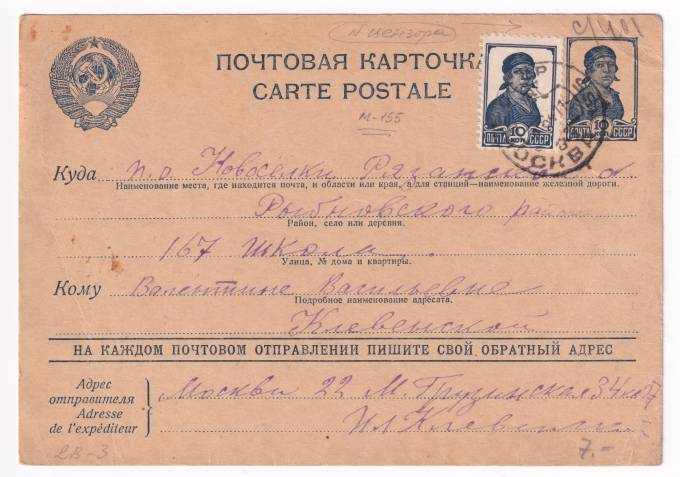 N цензора
ПОЧТОВАЯ КАРТОЧКА
CARTE POSTALE
М-155
10 КОП
ПОЧТА СССР
10 КОП
ПОЧТА СССР
МОСКВА
Куда п.о. Новоселки Рязанской
Наименование места, где находится почта, и области или края, а для станций—наименование железной дороги.
Рыбновского район
Район, село или деревня.
167 школа
Улица, № дома и квартиры.
Кому Валентине Васильевне
Подробное наименование адресата.
Клевенской
НА КАЖДОМ ПОЧТОВОМ ОТПРАВЛЕНИИ ПИШИТЕ СВОЙ ОБРАТНЫЙ АДРЕС
Адрес отправителя
Adresse de l'expéditeur
Москва 22 М. Грузинская 34
28-3
7.-